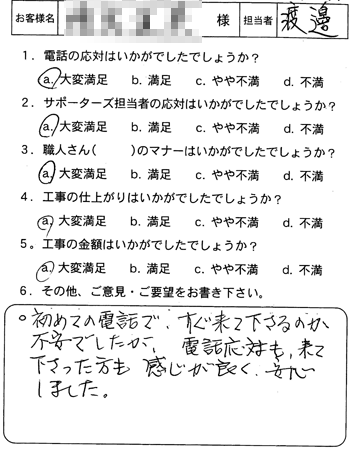 お客様名 様 担当者 渡邉
1．電話の応対はいかがでしたでしょうか？
a. 大変満足 b. 満足 c. やや不満 d. 不満
2．サポーターズ担当者の応対はいかがでしたでしょうか？
a. 大変満足 b. 満足 c. やや不満 d. 不満
3．職人さん(　　　)のマナーはいかがでしたでしょうか？
a. 大変満足 b. 満足 c. やや不満 d. 不満
4．工事の仕上がりはいかがでしたでしょうか？
a. 大変満足 b. 満足 c. やや不満 d. 不満
5。工事の金額はいかがでしたでしょうか？
a. 大変満足 b. 満足 c. やや不満 d. 不満
6．その他、ご意見・ご要望をお書き下さい。
○初めての電話で、すぐ来て下さるのか
不安でしたが、電話応対も、来て
下さった方も 感じが良く、安心
しました。